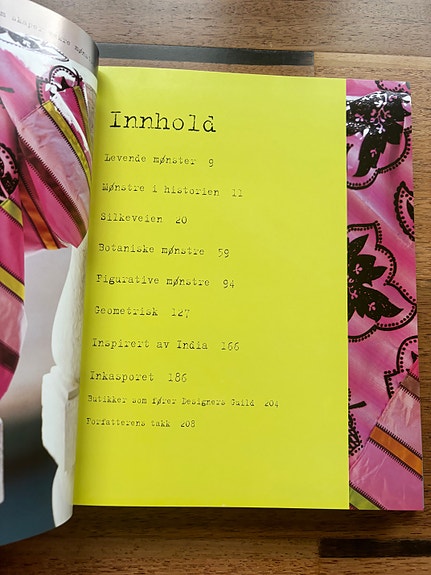 Innhold
Levende mønster 9
Mønstre i historien 11
Silkeveien 20
Botaniske mønstre 59
Figurative mønstre 94
Geometrisk 127
Inspirert av India 166
Inkasporet 186
Butikker som fører Designers Guild 204
Forfatterens takk 208